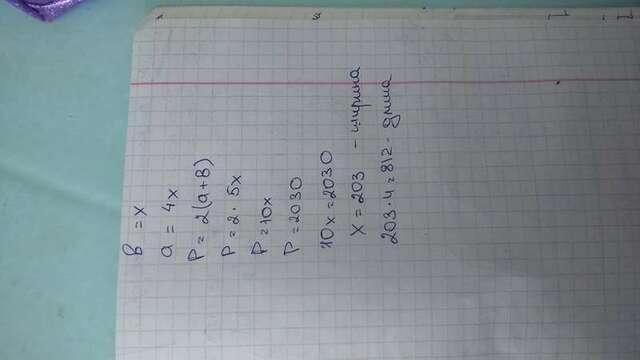 в = x
a = 4x
P = 2(a+в)
P = 2 · 5x
P = 10x
P = 2030
10x = 2030
x = 203 - ширина
203 · 4 = 812 - длина